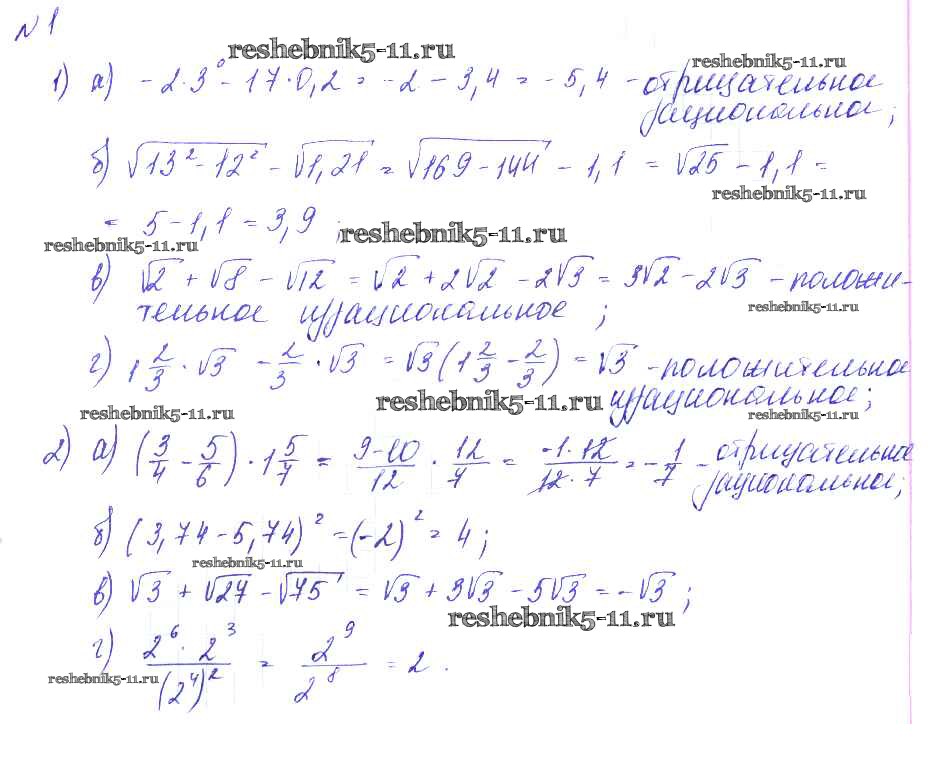 № 1
reshebnik5-11.ru
reshebnik5-11.ru
1) а) -2·3⁰ - 17·0,2 = -2 - 3,4 = -5,4 - отрицательное
рациональное;
б) √(13² - 12²) - √1,21 = √(169 - 144) - 1,1 = √25 - 1,1 =
reshebnik5-11.ru
= 5 - 1,1 = 3,9 ;
reshebnik5-11.ru
reshebnik5-11.ru
в) √2 + √8 - √12 = √2 + 2√2 - 2√3 = 3√2 - 2√3 - положи-
тельное иррациональное ;
reshebnik5-11.ru
г) 1 2/3 · √3 - 2/3 · √3 = √3 (1 2/3 - 2/3) = √3 - положительное
иррациональное;
reshebnik5-11.ru
reshebnik5-11.ru
reshebnik5-11.ru
2) а) (3/4 - 5/6) · 1 5/7 = (9-10)/12 · 12/7 = (-1·12)/(12·7) = -1/7 - отрицательное
рациональное;
б) (3,74 - 5,74)² = (-2)² = 4;
reshebnik5-11.ru
в) √3 + √27 - √75 = √3 + 3√3 - 5√3 = -√3 ;
reshebnik5-11.ru
г) (2⁶ · 2³)/(2⁴)² = 2⁹/2⁸ = 2 .
reshebnik5-11.ru